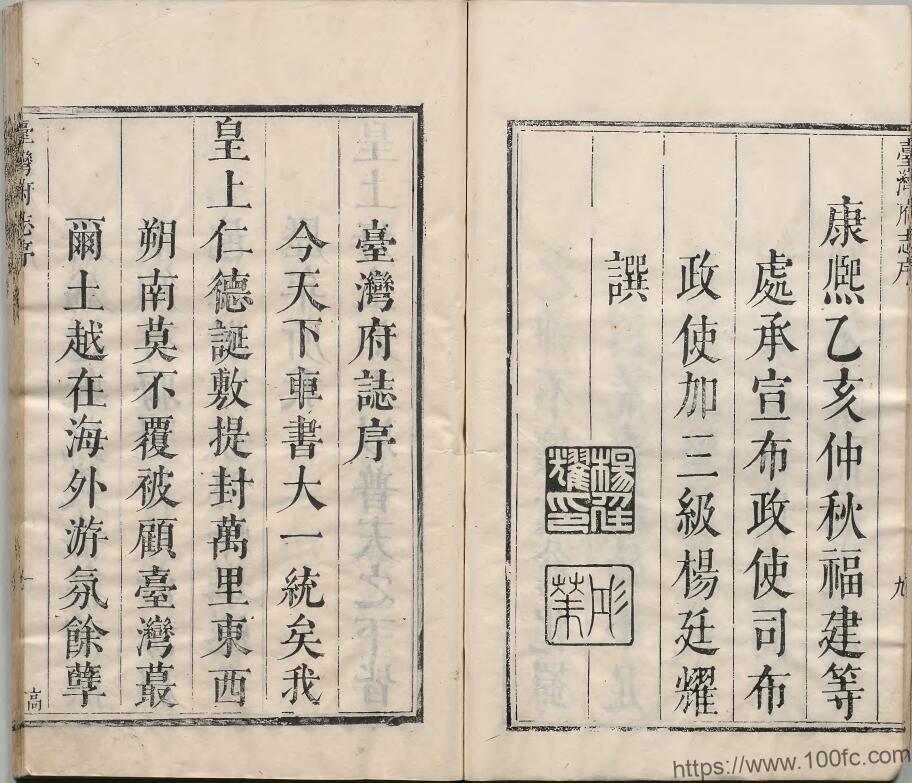 臺灣府志序
九
康熙乙亥仲秋福建等
處承宣布政使司布
政使加三級楊廷耀
譔
楊廷耀印
臺灣府誌序
今天下車書大一統矣我
皇上仁德誕敷提封萬里東西
朔南莫不覆被顧臺灣蕞
爾土越在海外游氛餘孽
臺灣府志序
一
高
https://www.100fc.com